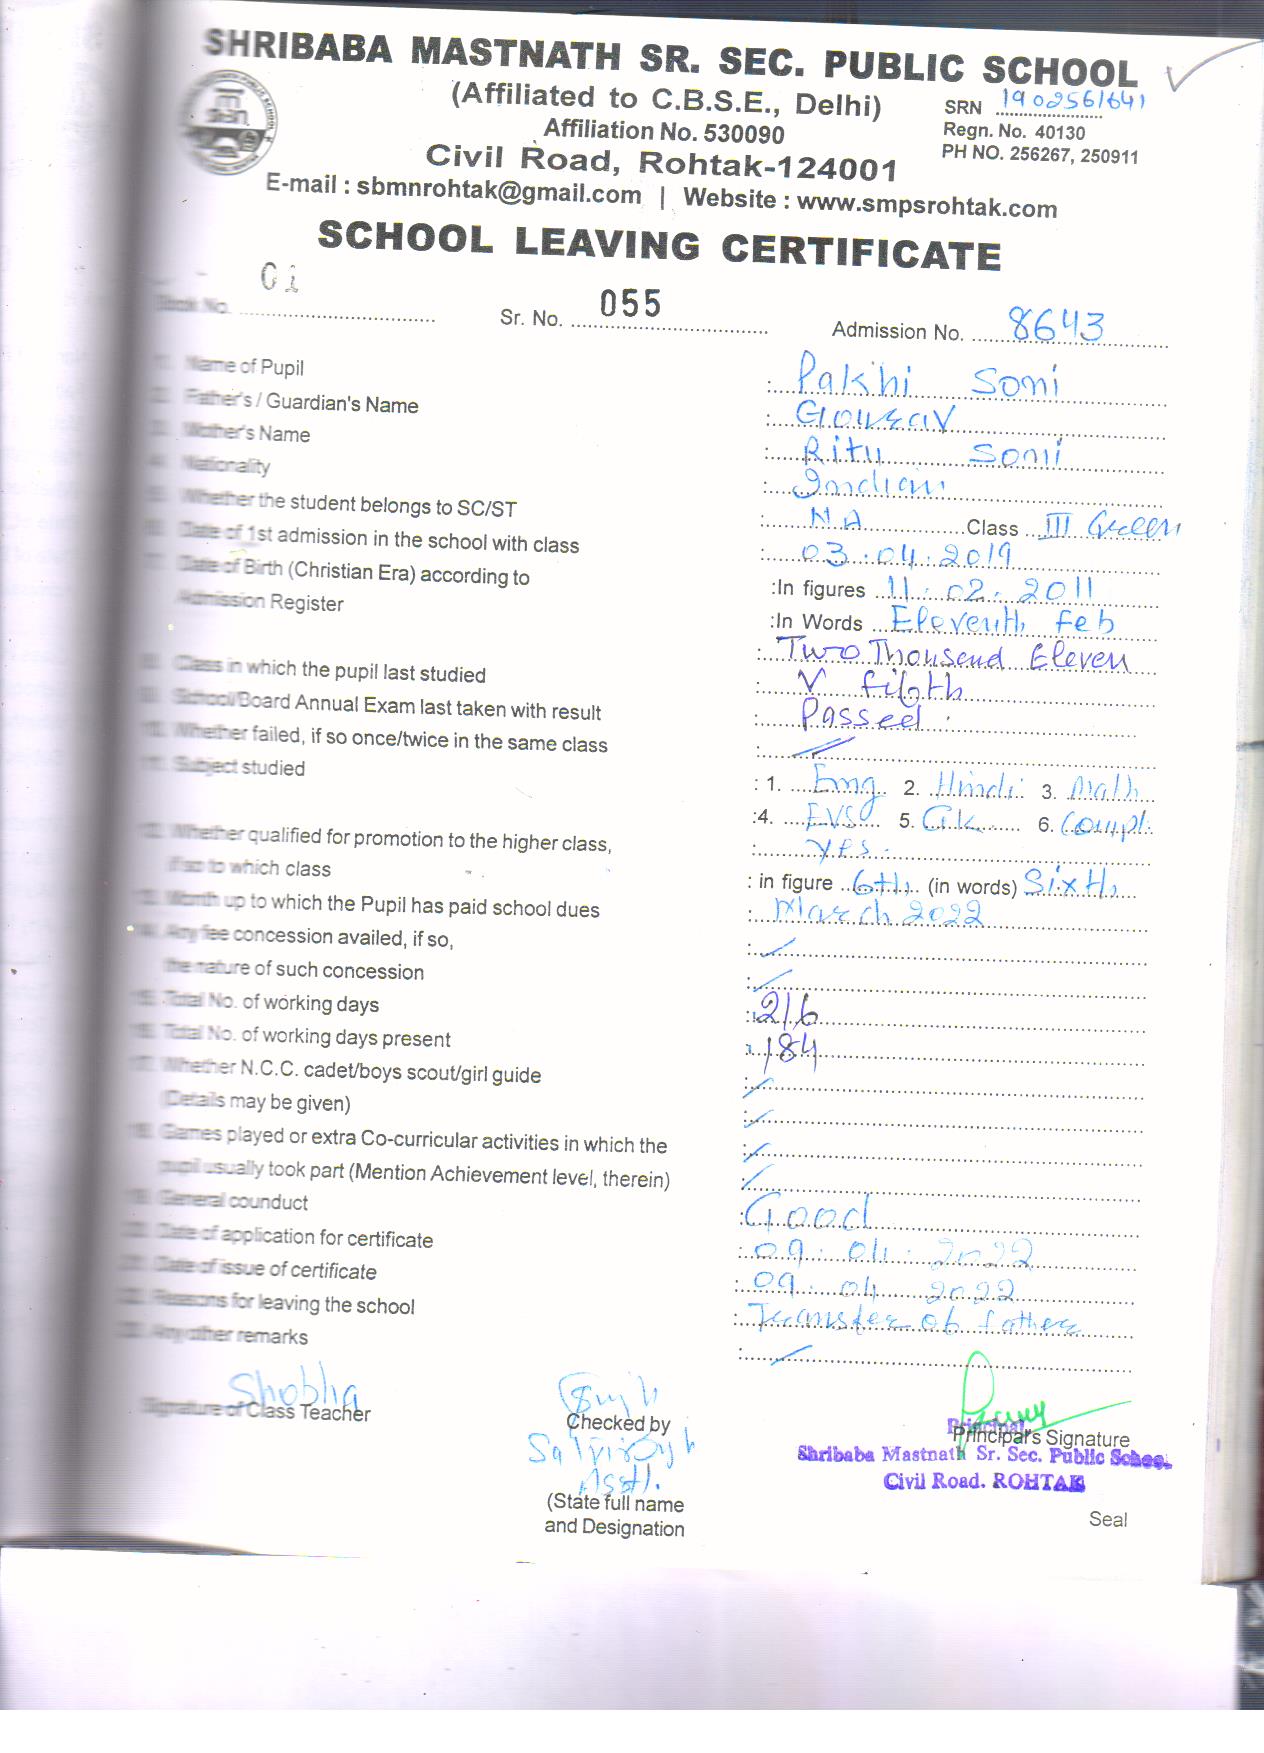 SHRIBABA MASTNATH SR. SEC. PUBLIC SCHOOL
(Affiliated to C.B.S.E., Delhi)
SRN 1902561641
Affiliation No. 530090
Regn. No. 40130
Civil Road, Rohtak-124001
PH NO. 256267, 250911
E-mail : sbmnrohtak@gmail.com | Website : www.smpsrohtak.com
SCHOOL LEAVING CERTIFICATE
Book No. Sr. No. 055 Admission No. 8643
1. Name of Pupil : Pakhi Soni
2. Father's / Guardian's Name : Gourav
3. Mother's Name : Ritu Soni
4. Nationality : Indian
5. Whether the student belongs to SC/ST : N.A Class III Green
6. Date of 1st admission in the school with class : 03.04.2019
7. Date of Birth (Christian Era) according to :In figures 11.02.2011
Admission Register :In Words Eleventh Feb
: Two Thousend Eleven
8. Class in which the pupil last studied : V fifth
9. School/Board Annual Exam last taken with result : Passed
10. Whether failed, if so once/twice in the same class :
11. Subject studied : 1. Eng 2. Hindi 3. Math
:4. EVS 5. G.K 6. Comp.
12. Whether qualified for promotion to the higher class, : Yes
if so to which class : in figure 6th (in words) Sixth
13. Month up to which the Pupil has paid school dues : March 2022
14. Any fee concession availed, if so, :
the nature of such concession :
15. Total No. of working days : 216
16. Total No. of working days present : 184
17. Whether N.C.C. cadet/boys scout/girl guide :
(Details may be given) :
18. Games played or extra Co-curricular activities in which the :
pupil usually took part (Mention Achievement level, therein) :
19. General counduct : Good
20. Date of application for certificate : 09.04.2022
21. Date of issue of certificate : 09.04 2022
22. Reasons for leaving the school : Transfer of father
23. Any other remarks :
Shobha
Signature of Class Teacher
Checked by
Asstt.
(State full name
and Designation
Principal
Principal's Signature
Shribaba Mastnath Sr. Sec. Public School
Civil Road. ROHTAK
Seal